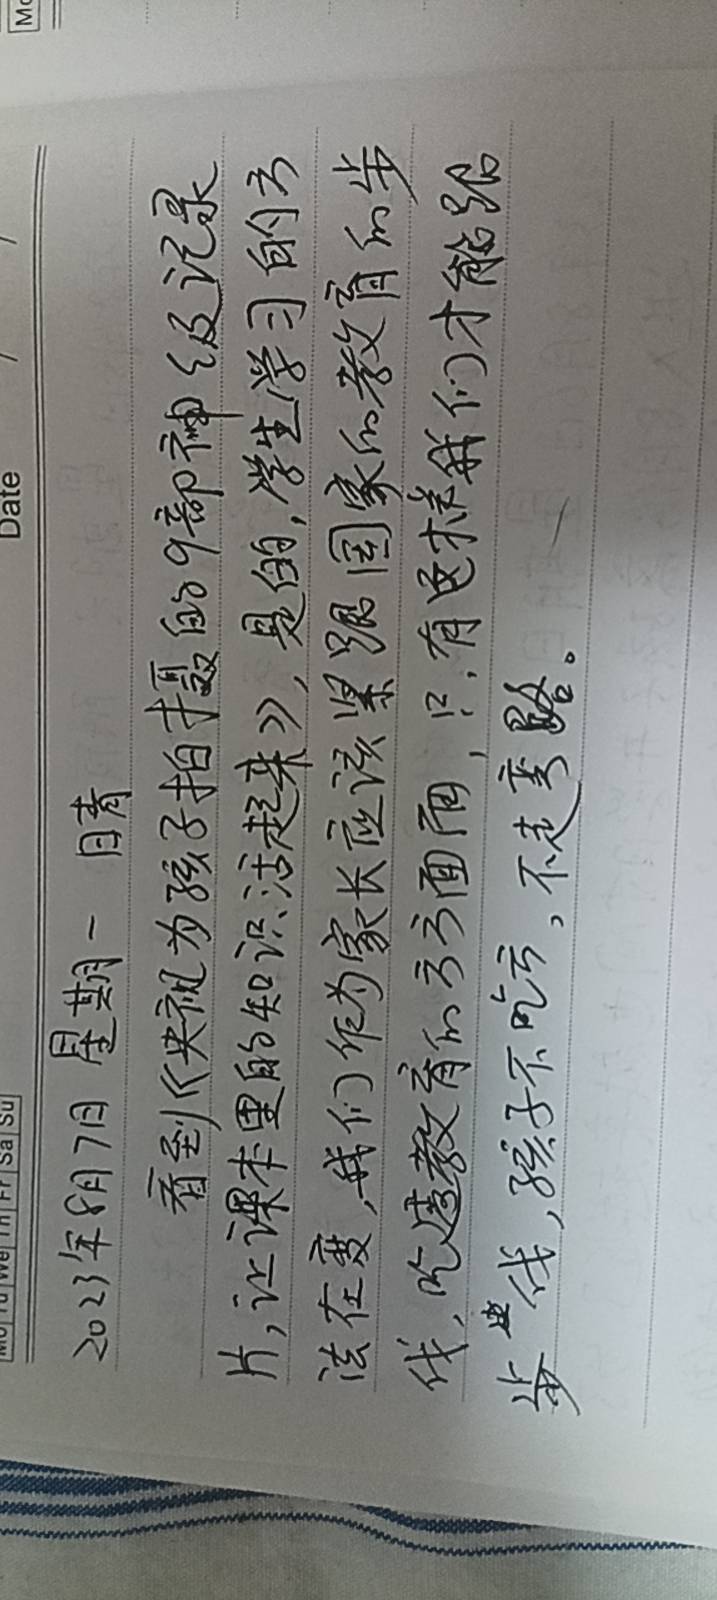 Mo Tu We Th Fr Sa Su
Date / /
2023年8月7日 星期一 日青
看到《央视为孩子拍摄的9部神级记录
片,让课本里的知识活起来》,是的,学生学习的方
法在变,我们作为家长应该紧跟国家的教育的步
伐,吃透教育的方方面面,只有这样我们才能跟
步伐,孩子不吃亏,不走弯路。